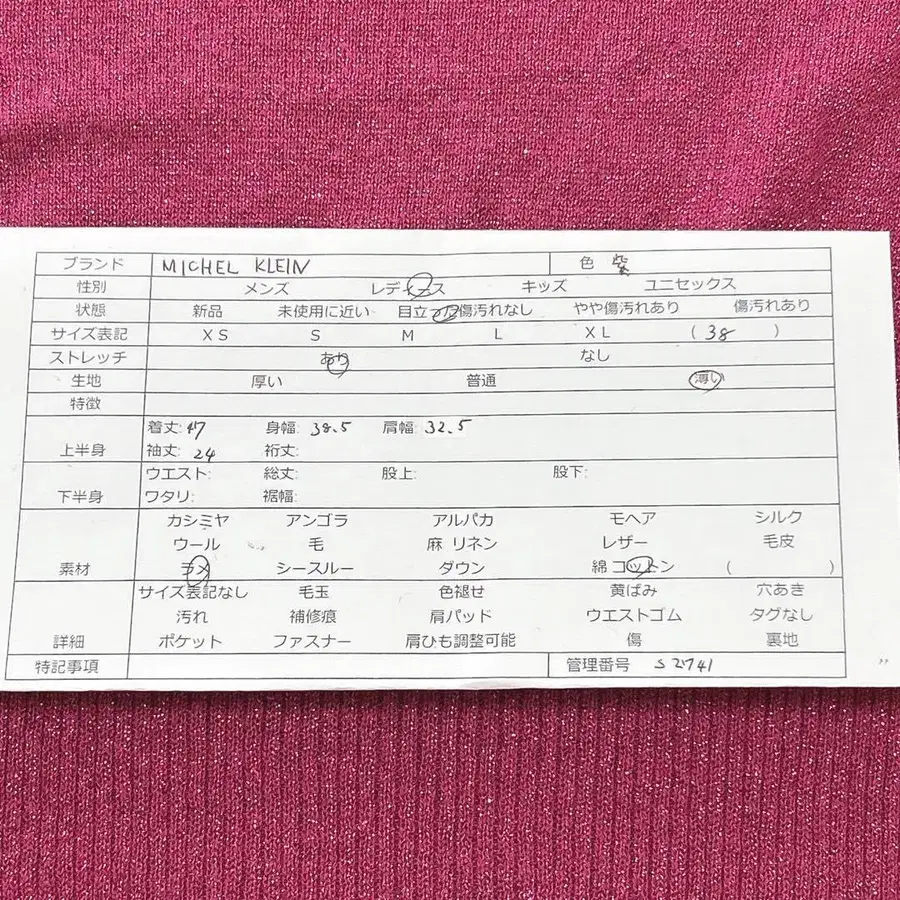 ブランド MICHEL KLEIN 色 紫
性別 メンズ レディース キッズ ユニセックス
状態 新品 未使用に近い 目立った傷汚れなし やや傷汚れあり 傷汚れあり
サイズ表記 XS S M L XL (38)
ストレッチ あり なし
生地 厚い 普通 薄い
特徴
着丈: 47 身幅: 38.5 肩幅: 32.5
上半身 袖丈: 24 裄丈:
ウエスト: 総丈: 股上: 股下:
下半身 ワタリ: 裾幅:
カシミヤ アンゴラ アルパカ モヘア シルク
ウール 毛 麻 リネン レザー 毛皮
素材 ラメ シースルー ダウン 綿 コットン ( )
サイズ表記なし 毛玉 色褪せ 黄ばみ 穴あき
汚れ 補修痕 肩パッド ウエストゴム タグなし
詳細 ポケット ファスナー 肩ひも調整可能 傷 裏地
特記事項 管理番号 S2741